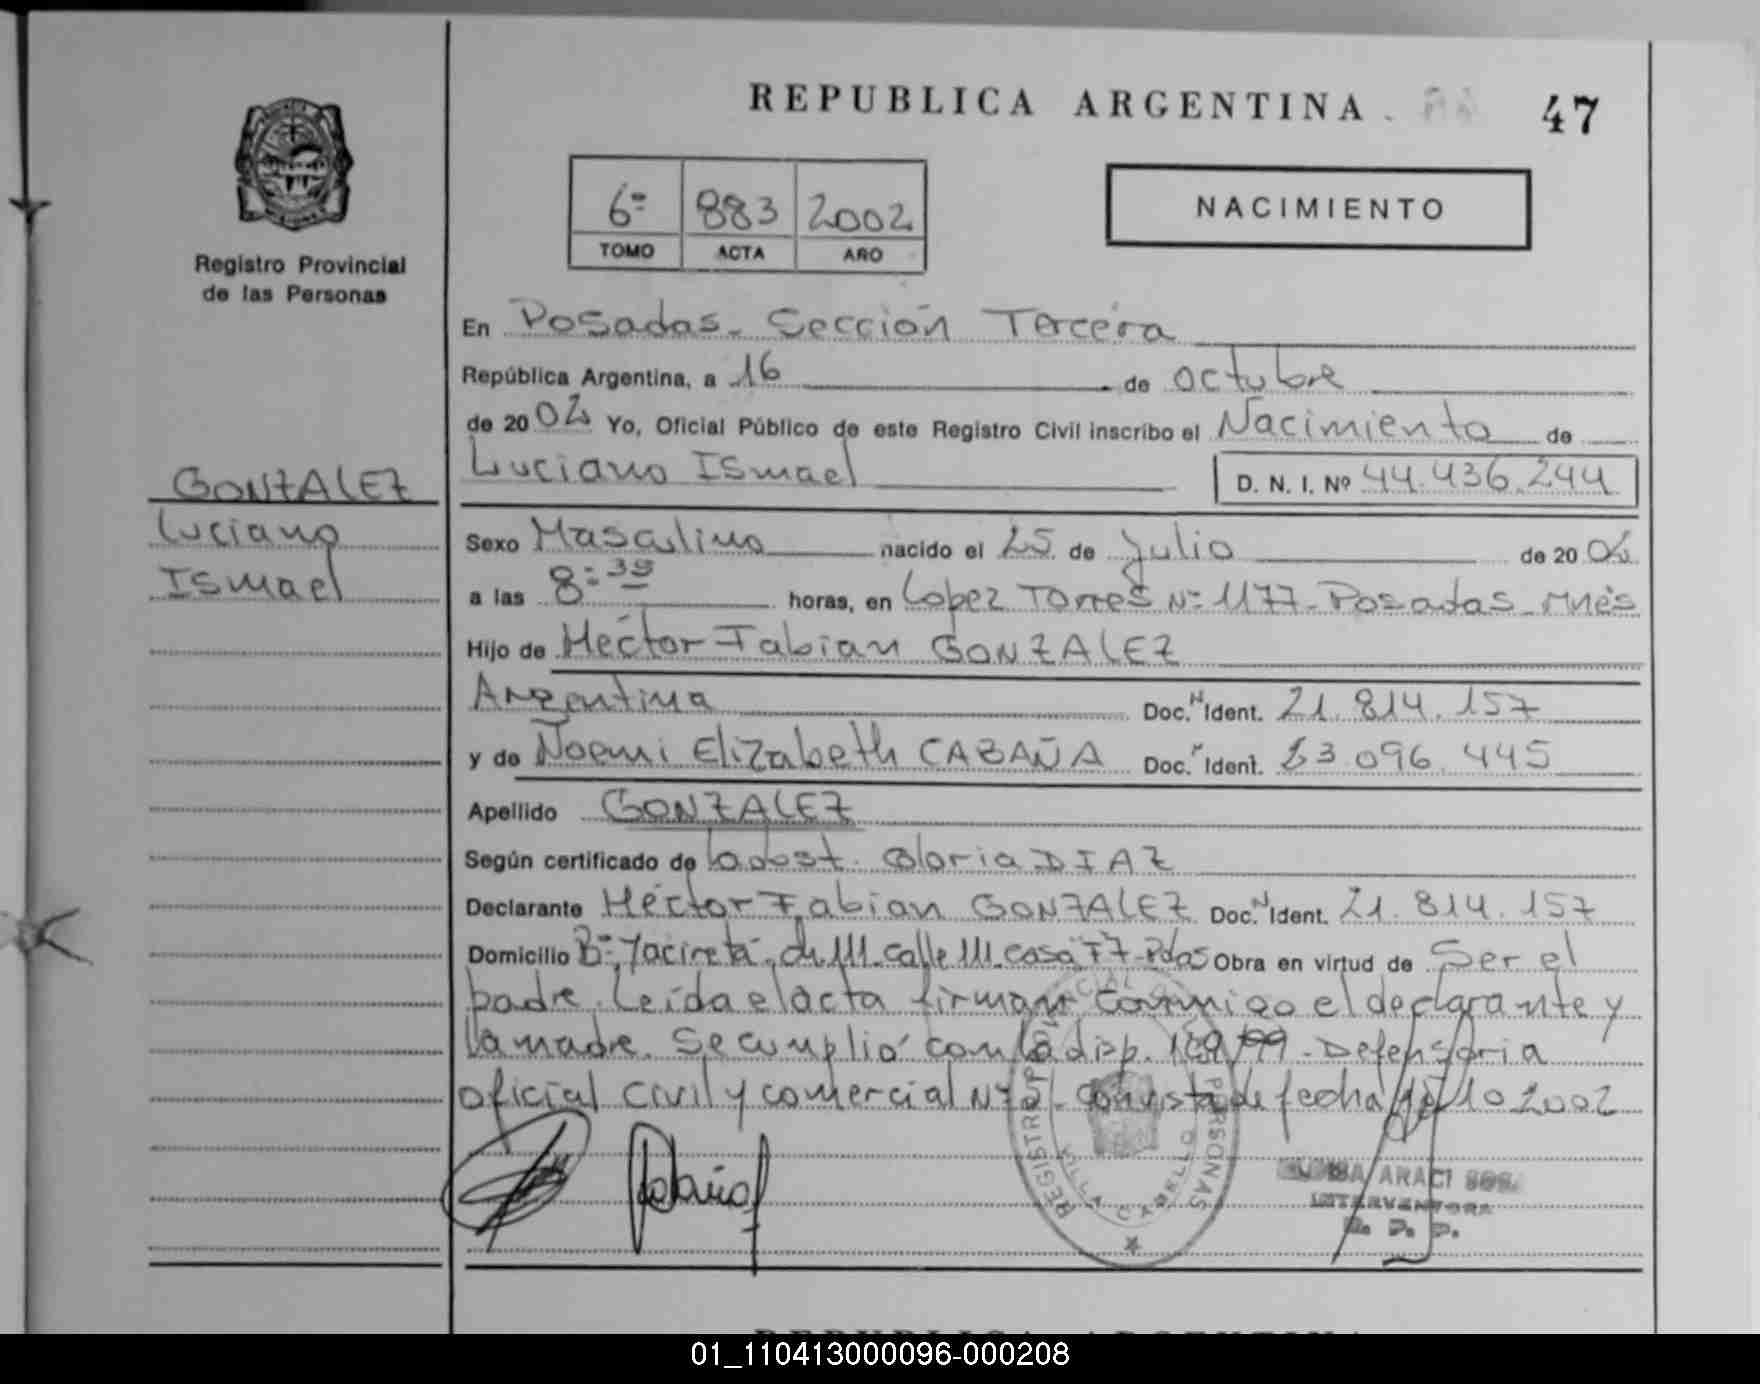 REPUBLICA ARGENTINA
47
6º 883 2002
TOMO ACTA AÑO
NACIMIENTO
Registro Provincial
de las Personas
En Posadas - Sección Tercera
República Argentina, a 16 de octubre
de 2002 Yo, Oficial Público de este Registro Civil inscribo el Nacimiento de
Luciano Ismael D. N. I. Nº 44.436.244
GONZALEZ
Luciano
Ismael
Sexo Masculino nacido el 25 de Julio de 2002
a las 8:35 horas, en Lopez Torres Nº 1177 - Posadas - Mnes
Hijo de Héctor Fabian GONZALEZ
Argentina Doc. N Ident. 21.814.157
y de Noemi Elizabeth CABAÑA Doc. N Ident. 23.096.445
Apellido GONZALEZ
Según certificado de la obst. Gloria DIAZ
Declarante Héctor Fabian GONZALEZ Doc. N Ident. 21.814.157
Domicilio Bº Yacireta - ch 111 - calle 111 - casa 77 - Pdas Obra en virtud de Ser el
padre. Leida el acta firman conmigo el declarante y
la madre. Se cumplió con la disp. 189/99 - Defensoria
oficial Civil y comercial Nº 2 - Con vista de fecha 10 2002
Cabaña
REGISTRO PROVINCIAL PERSONAS
VILLA CABELLO
ARACI
INTERVENTORA
R. P. P.
REPUBLICA ARGENTINA
01_110413000096-000208